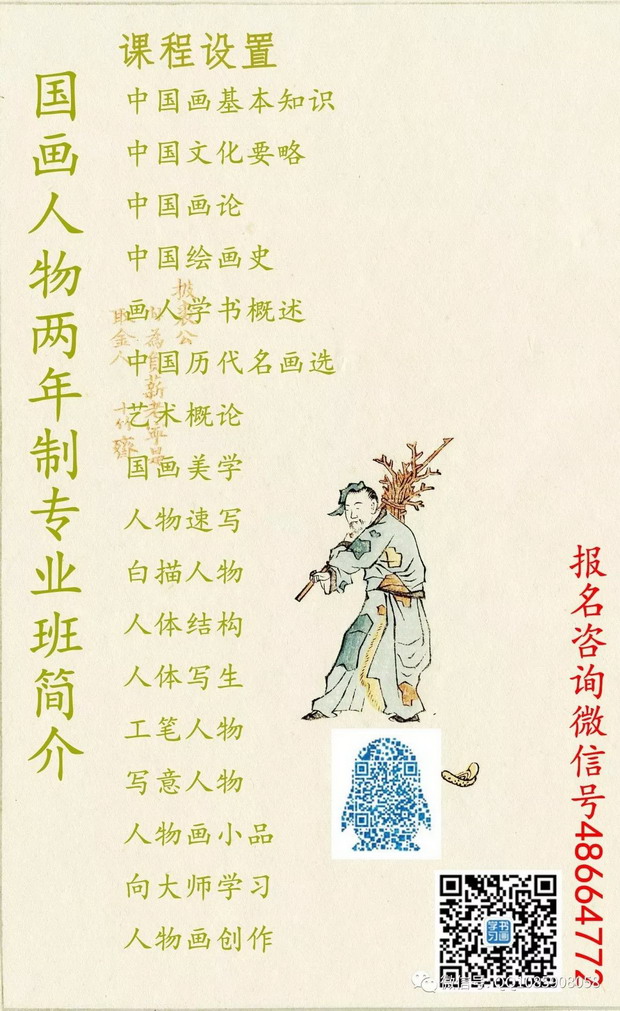 国画人物两年制专业班简介
课程设置
中国画基本知识
中国文化要略
中国画论
中国绘画史
画人学书概述
中国历代名画选
艺术概论
国画美学
人物速写
白描人物
人体结构
人体写生
工笔人物
写意人物
人物画小品
向大师学习
人物画创作
披裘公
取金人
十竹斋
报名咨询微信号48664772
学书
习画